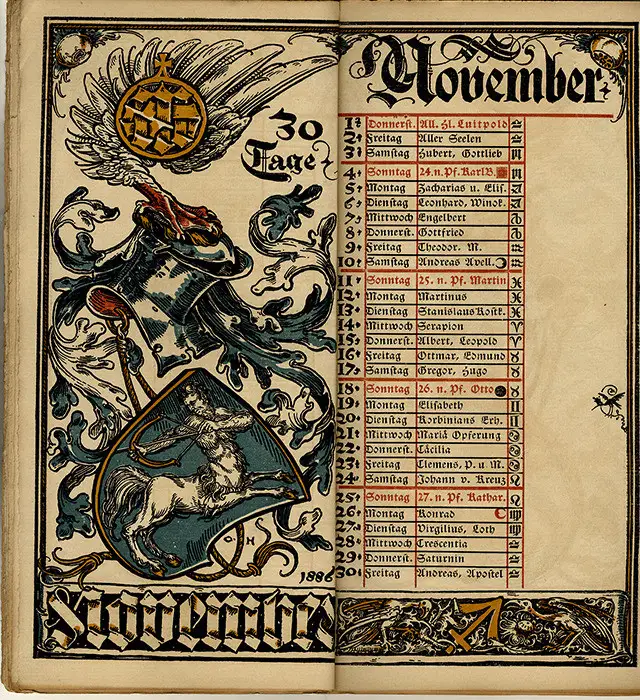 30
Tage
November
1 Donnerst. All. Hl. Luitpold
2 Freitag Aller Seelen
3 Samstag Hubert, Gottlieb
4 Sonntag 24. n. Pf. Karl B.
5 Montag Zacharias u. Elis.
6 Dienstag Leonhard, Winok.
7 Mittwoch Engelbert
8 Donnerst. Gottfried
9 Freitag Theodor. M.
10 Samstag Andreas Avell.
11 Sonntag 25. n. Pf. Martin
12 Montag Martinus
13 Dienstag Stanislaus Kostk.
14 Mittwoch Serapion
15 Donnerst. Albert, Leopold
16 Freitag Ottmar, Edmund
17 Samstag Gregor, Hugo
18 Sonntag 26. n. Pf. Otto
19 Montag Elisabeth
20 Dienstag Korbinians Erh.
21 Mittwoch Mariä Opferung
22 Donnerst. Cäcilia
23 Freitag Clemens, P. u. M.
24 Samstag Johann v. Kreuz
25 Sonntag 27. n. Pf. Kathar.
26 Montag Konrad
27 Dienstag Virgilius, Loth
28 Mittwoch Crescentia
29 Donnerst. Saturnin
30 Freitag Andreas, Apostel
O. H
1886
November